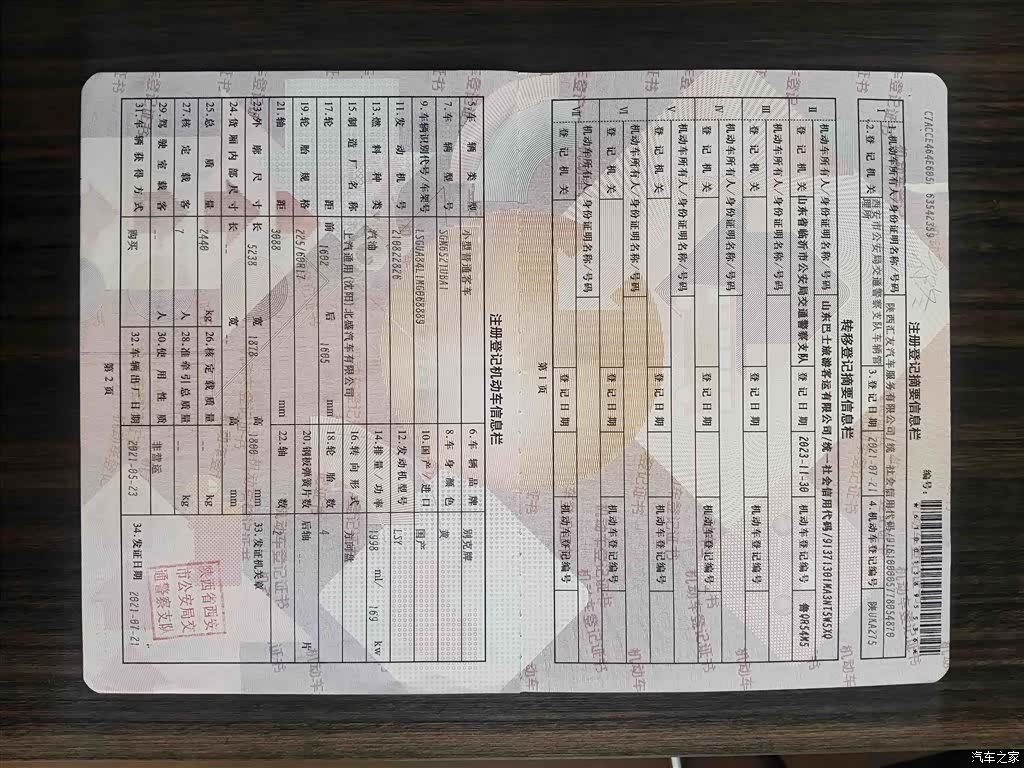 C7ACCE464E605
63542359
编号:
注册登记摘要信息栏
Ⅰ
1.机动车所有人/身份证明名称/号码 陕西汇友汽车服务有限公司/统一社会信用代码/
2.登记机关 西安市公安局交通警察支队车辆管理所 3.登记日期 2021-07-21 4.机动车登记编号 陕UKA275
转移登记摘要信息栏
Ⅱ
机动车所有人/身份证明名称/号码 山东巴士旅游客运有限公司/统一社会信用代码/91371301MA3NT5W5XQ
登记机关 山东省临沂市公安局交通警察支队 登记日期 2023-11-30 机动车登记编号 鲁QR54M5
Ⅲ
机动车所有人/身份证明名称/号码
登记机关 登记日期 机动车登记编号
Ⅳ
机动车所有人/身份证明名称/号码
登记机关 登记日期 机动车登记编号
Ⅴ
机动车所有人/身份证明名称/号码
登记机关 登记日期 机动车登记编号
Ⅵ
机动车所有人/身份证明名称/号码
登记机关 登记日期 机动车登记编号
Ⅶ
机动车所有人/身份证明名称/号码
登记机关 登记日期 机动车登记编号
第1页
注册登记机动车信息栏
5.车辆类型 小型普通客车 6.车辆品牌 别克牌
7.车辆型号 SGM6521UBA1 8.车身颜色 黄
9.车辆识别代号/车架号 LSGUA84L1MG068889 10.国产/进口 国产
11.发动机号 210822826 12.发动机型号 LSY
13.燃料种类 汽油 14.排量/功率 1998 ml/ 169 kw
15.制造厂名称 上汽通用(沈阳)北盛汽车有限公司 16.转向形式 方向盘
17.轮距 前 1602 后 1605 mm 18.轮胎数 4
19.轮胎规格 225/60R17 20.钢板弹簧片数 后轴 -- 片
21.轴距 3088 mm 22.轴数 2
23.外廓尺寸 长 5238 宽 1878 高 1800 mm 33.发证机关章
24.货厢内部尺寸 长 -- 宽 -- 高 -- mm
25.总质量 2440 kg 26.核定载质量 -- kg
27.核定载客 7 人 28.准牵引总质量 -- kg
29.驾驶室载客 -- 人 30.使用性质 非营运
31.车辆获得方式 购买 32.车辆出厂日期 2021-05-23 34.发证日期 2021-07-21
陕西省西安
市公安局交
通警察支队
第2页
汽车之家